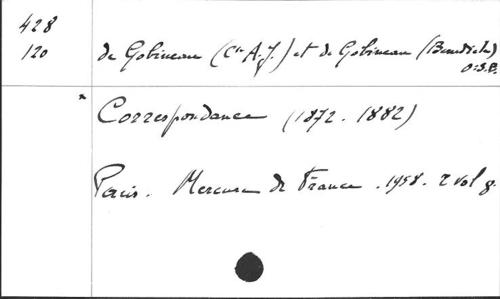 428
120
de Gobineau (Cte A.J.) et de Gobineau (Bénédicte)
O.S.B.
* Correspondance (1872 - 1882)
Paris. Mercure de France. 1958. 2 vol 8.